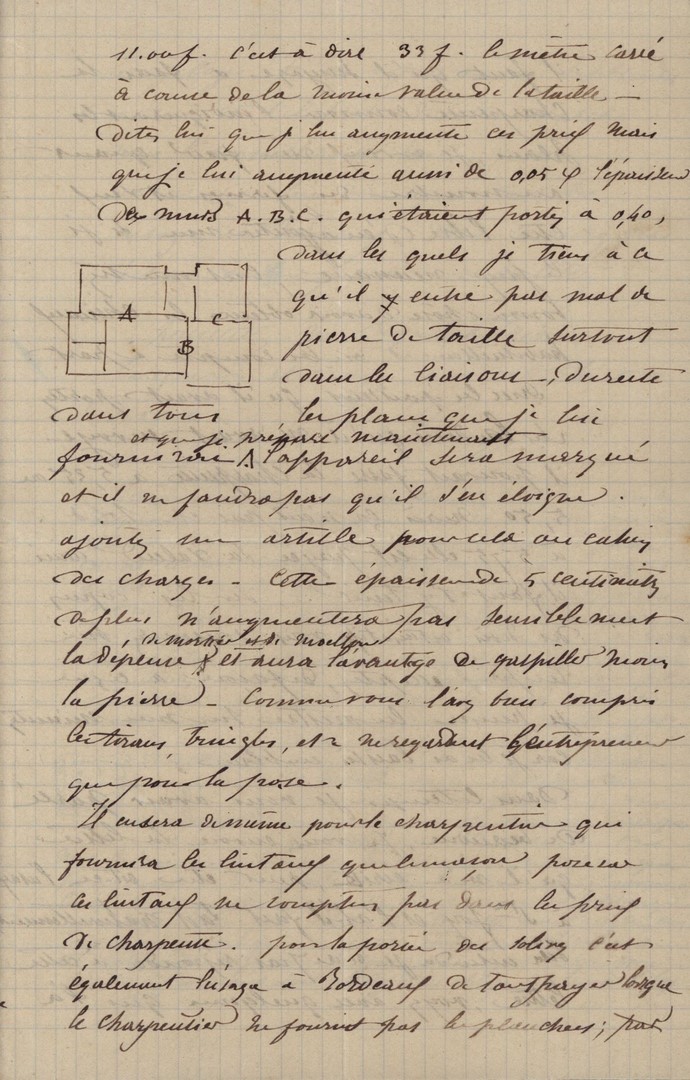 11.00 f. c'est à dire 33 f. le mètre carré
à cause de la moins value de la taille —
dites lui que j lui augmente ces prix mais
que je lui augmente aussi de 0,05 l'épaisseur
des murs A.B.C. qui étaient portés à 0,40,
dans les quels je tiens à ce
qu'il y entre pas mal de
A
C
B
pierre de taille surtout
dans les liaisons, du reste
dans tous les plans que je lui
et que je prépare maintenant
fournirai l'appareil sera marqué
et il ne faudra pas qu'il s'en éloigne.
ajoutez un article pour cela au cahier
des charges — Cette épaisseur de 5 centimètres
de plus n'augmentera pas sensiblement
de mortier et de moellon
la dépense et aura l'avantage de gaspiller moins
la pierre — Comme vous l'avez bien compris
les tirans, tringles, etc ne regardent l'entrepreneur
que pour la pose.
Il en sera de même pour le charpentier qui
fournira les lintaux que le maçon posera
ces lintaux ne comptent pas dans les prix
de charpente. pour la portée des solives c'est
également l'usage à Bordeaux de tout payer lorsque
le charpentier ne fournit pas les planchers; par